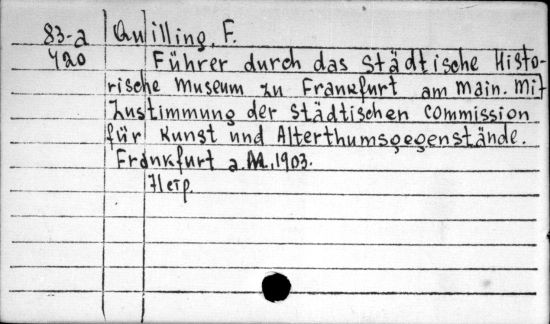 83-a Quilling, F.
420 Führer durch das Städtische Histo-
rische Museum zu Frankfurt am Main. Mit
Zustimmung der Städtischen Commission
für Kunst und Alterthumsgegenstände.
Frankfurt a.M., 1903.